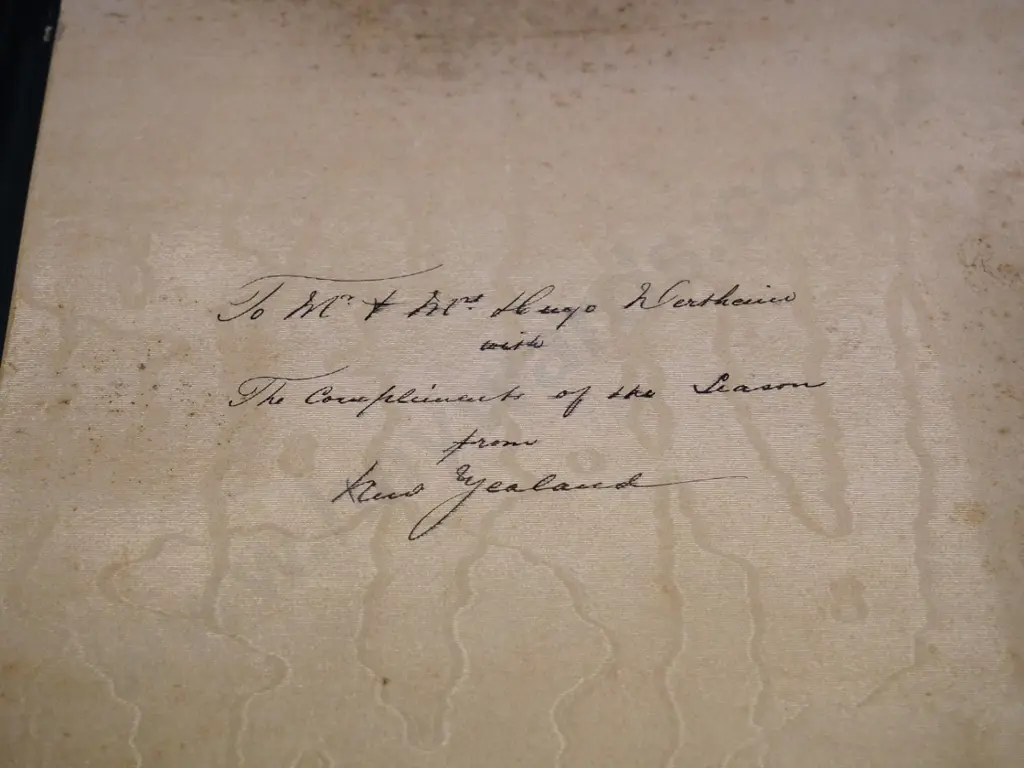 To Mr & Mrs Hugo Wertheim
with
The Compliments of the Season
from
New Zealand